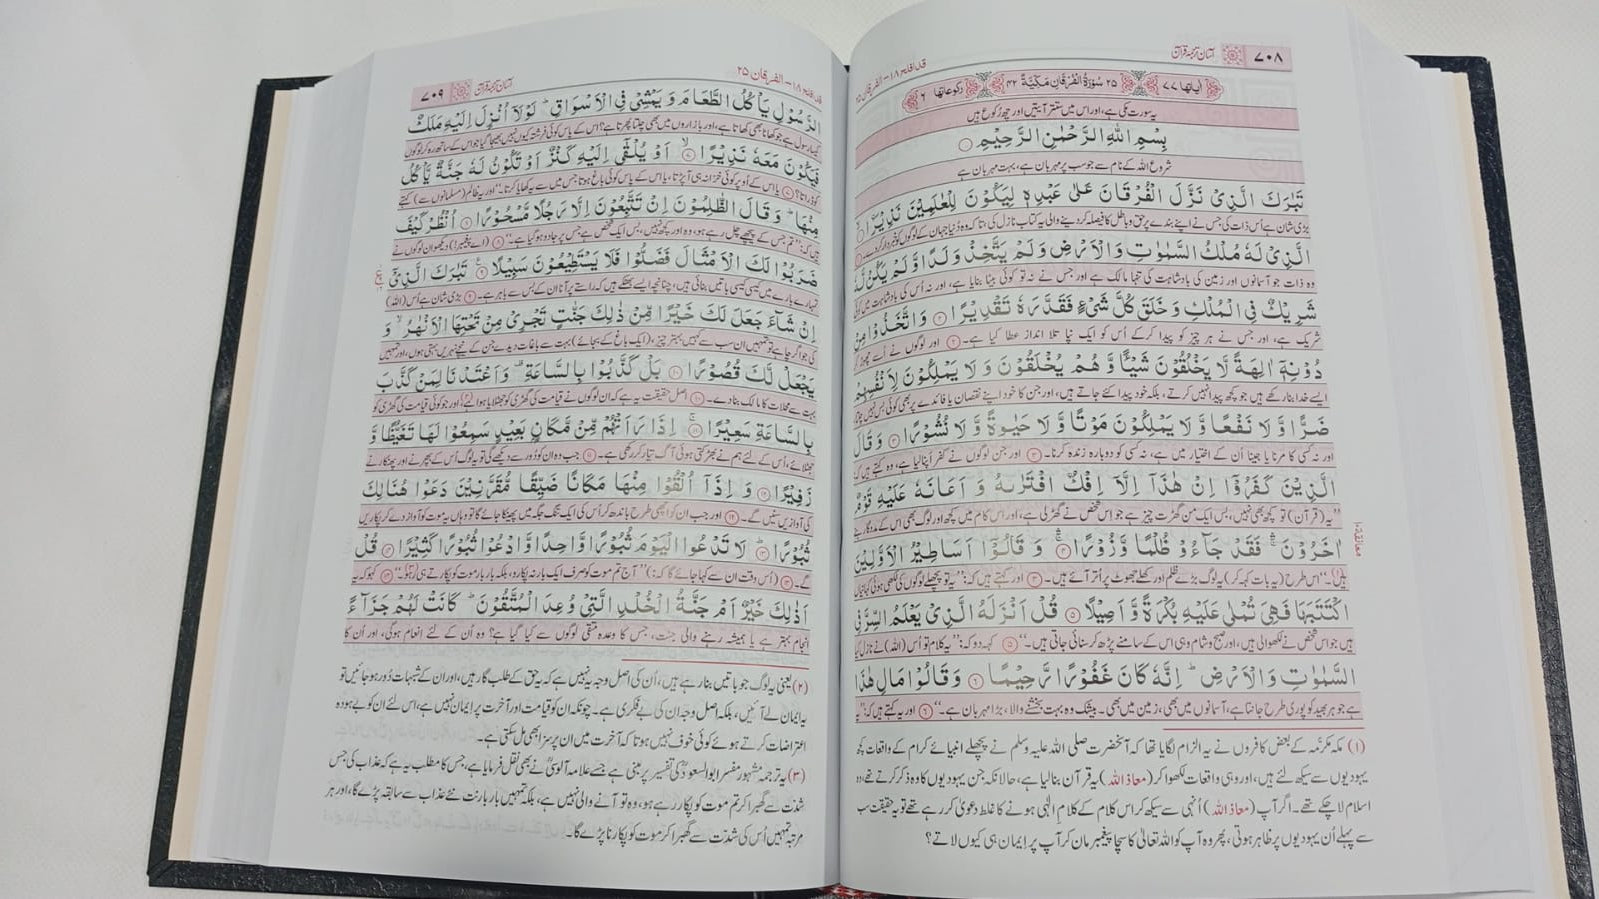 ۷۰۸
آسان ترجمۂ قرآن
قد افلح ۱۸ - الفرقان ۲۵
اٰیاتها ۷۷
۲۵ سُوْرَةُ الْفُرْقَانِ مَكِّيَّةٌ ۴۲
رکوعاتها ۶
یہ سورت مکی ہے، اور اس میں ستتر آیتیں اور چھ رکوع ہیں
بِسْمِ اللّٰهِ الرَّحْمٰنِ الرَّحِيْمِ
شروع اللہ کے نام سے جو سب پر مہربان ہے، بہت مہربان ہے
تَبٰرَكَ الَّذِيْ نَزَّلَ الْفُرْقَانَ عَلٰى عَبْدِهٖ لِيَكُوْنَ لِلْعٰلَمِيْنَ نَذِيْرًا ۙ ۱
بڑی شان ہے اُس ذات کی جس نے اپنے بندے پر حق و باطل کا فیصلہ کر دینے والی یہ کتاب نازل کی، تاکہ وہ دُنیا جہان کے لوگوں کو خبردار کر دے،
الَّذِيْ لَهٗ مُلْكُ السَّمٰوٰتِ وَالْاَرْضِ وَلَمْ يَتَّخِذْ وَلَدًا وَّلَمْ يَكُنْ لَّهٗ
وہ ذات جو آسمانوں اور زمین کی بادشاہت کی تنہا مالک ہے اور جس نے نہ تو کوئی بیٹا بنایا ہے، اور نہ اُس کی بادشاہت میں کوئی
شَرِيْكٌ فِي الْمُلْكِ وَخَلَقَ كُلَّ شَيْءٍ فَقَدَّرَهٗ تَقْدِيْرًا ۲ وَاتَّخَذُوْا مِنْ
شریک ہے، اور جس نے ہر چیز کو پیدا کر کے اُس کو ایک نپا تلا انداز عطا کیا ہے۔ ۲ اور لوگوں نے اُسے چھوڑ کر
دُوْنِهٖۤ اٰلِهَةً لَّا يَخْلُقُوْنَ شَيْـًٔا وَّهُمْ يُخْلَقُوْنَ وَلَا يَمْلِكُوْنَ لِاَنْفُسِهِمْ
ایسے خدا بنا رکھے ہیں جو کچھ پیدا نہیں کرتے، بلکہ خود پیدا کئے جاتے ہیں، اور جن کا خود اپنے نقصان یا فائدے پر بھی کوئی بس نہیں چلتا،
ضَرًّا وَّلَا نَفْعًا وَّلَا يَمْلِكُوْنَ مَوْتًا وَّلَا حَيٰوةً وَّلَا نُشُوْرًا ۳ وَقَالَ
اور نہ کسی کا مرنا یا جینا اُن کے اختیار میں ہے، نہ کسی کو دوبارہ زندہ کرنا۔ ۳ اور جن لوگوں نے کفر اَپنا لیا ہے، وہ کہتے ہیں کہ:
الَّذِيْنَ كَفَرُوْۤا اِنْ هٰذَاۤ اِلَّاۤ اِفْكٌ افْتَرٰىهُ وَاَعَانَهٗ عَلَيْهِ قَوْمٌ
”یہ (قرآن) تو کچھ بھی نہیں، بس ایک من گھڑت چیز ہے جو اس شخص نے گھڑلی ہے، اور اس کام میں کچھ اور لوگ بھی اس کے مددگار بنے
اٰخَرُوْنَ ۛۚ فَقَدْ جَآءُوْ ظُلْمًا وَّزُوْرًا ۛۚ ۴ وَقَالُوْۤا اَسَاطِيْرُ الْاَوَّلِيْنَ
ہیں۔“ اس طرح (یہ بات کہہ کر) یہ لوگ بڑے ظلم اور کھلے جھوٹ پر اُتر آئے ہیں۔ ۴ اور کہتے ہیں کہ: ”یہ تو پچھلے لوگوں کی لکھی ہوئی کہانیاں
اكْتَتَبَهَا فَهِيَ تُمْلٰى عَلَيْهِ بُكْرَةً وَّاَصِيْلًا ۵ قُلْ اَنْزَلَهُ الَّذِيْ يَعْلَمُ السِّرَّ فِي
ہیں جو اس شخص نے لکھوالی ہیں، اور صبح و شام وہی اس کے سامنے پڑھ کر سنائی جاتی ہیں۔“ ۵ کہہ دو کہ: ”یہ کلام تو اُس (اللہ) نے نازل کیا
السَّمٰوٰتِ وَالْاَرْضِ ؕ اِنَّهٗ كَانَ غَفُوْرًا رَّحِيْمًا ۶ وَقَالُوْا مَالِ هٰذَا
ہے جو ہر بھید کو پوری طرح جانتا ہے، آسمانوں میں بھی، زمین میں بھی۔ بیشک وہ بہت بخشنے والا، بڑا مہربان ہے۔“ ۶ اور یہ کہتے ہیں کہ: ”یہ
(۱) مکہ مکرّمہ کے بعض کافروں نے یہ الزام لگایا تھا کہ آنحضرت صلی اللہ علیہ وسلم نے پچھلے انبیائے کرام کے واقعات کچھ
یہودیوں سے سیکھ لئے ہیں، اور وہی واقعات لکھوا کر (معاذ اللہ) یہ قرآن بنا لیا ہے، حالانکہ جن یہودیوں کا وہ ذکر کرتے تھے، وہ
اسلام لا چکے تھے۔ اگر آپ (معاذ اللہ) اُنہی سے سیکھ کر اس کلام کے کلامِ الٰہی ہونے کا غلط دعویٰ کر رہے تھے تو یہ حقیقت سب
سے پہلے اُن یہودیوں پر ظاہر ہوتی، پھر وہ آپ کو اللہ تعالیٰ کا سچا پیغمبر مان کر آپ پر اِیمان ہی کیوں لاتے؟
قد افلح ۱۸ - الفرقان ۲۵
آسان ترجمۂ قرآن
۷۰۹
الرَّسُوْلِ يَاْكُلُ الطَّعَامَ وَيَمْشِيْ فِي الْاَسْوَاقِ ؕ لَوْلَاۤ اُنْزِلَ اِلَيْهِ مَلَكٌ
کیسا رسول ہے جو کھانا بھی کھاتا ہے، اور بازاروں میں بھی چلتا پھرتا ہے؟ اس کے پاس کوئی فرشتہ کیوں نہیں بھیجا گیا جو اس کے ساتھ رہ کر لوگوں
فَيَكُوْنَ مَعَهٗ نَذِيْرًا ۙ ۷ اَوْ يُلْقٰۤى اِلَيْهِ كَنْزٌ اَوْ تَكُوْنُ لَهٗ جَنَّةٌ يَّاْكُلُ
کو ڈراتا؟ ۷ یا اس کے اُوپر کوئی خزانہ ہی آ پڑتا، یا اس کے پاس کوئی باغ ہوتا جس میں سے یہ کھایا کرتا۔“ اور یہ ظالم (مسلمانوں سے) کہتے
مِنْهَا ؕ وَقَالَ الظّٰلِمُوْنَ اِنْ تَتَّبِعُوْنَ اِلَّا رَجُلًا مَّسْحُوْرًا ۸ اُنْظُرْ كَيْفَ
ہیں کہ: ”تم جس کے پیچھے چل رہے ہو، وہ اور کچھ نہیں، بس ایک شخص ہے جس پر جادو ہو گیا ہے۔“ ۸ (اے پیغمبر!) دیکھو ان لوگوں نے
ضَرَبُوْا لَكَ الْاَمْثَالَ فَضَلُّوْا فَلَا يَسْتَطِيْعُوْنَ سَبِيْلًا ۹ تَبٰرَكَ الَّذِيْۤ
تمہارے بارے میں کیسی کیسی باتیں بنائی ہیں، چنانچہ ایسے بھٹکے ہیں کہ راستے پر آنا ان کے بس سے باہر ہے۔ ۹ بڑی شان ہے اُس (اللہ)
اِنْ شَآءَ جَعَلَ لَكَ خَيْرًا مِّنْ ذٰلِكَ جَنّٰتٍ تَجْرِيْ مِنْ تَحْتِهَا الْاَنْهٰرُ ۙ وَ
کی جو اگر چاہے تو تمہیں ان سب سے کہیں بہتر چیز، (ایک باغ کے بجائے) بہت سے باغات دیدے جن کے نیچے نہریں بہتی ہوں، اور تمہیں
يَجْعَلْ لَّكَ قُصُوْرًا ۱۰ بَلْ كَذَّبُوْا بِالسَّاعَةِ ۫ وَاَعْتَدْنَا لِمَنْ كَذَّبَ
بہت سے محلات کا مالک بنا دے۔ ۱۰ اصل حقیقت یہ ہے کہ ان لوگوں نے قیامت کی گھڑی کو جھٹلایا ہوا ہے، اور جو کوئی قیامت کی گھڑی کو
بِالسَّاعَةِ سَعِيْرًا ۚ ۱۱ اِذَا رَاَتْهُمْ مِّنْ مَّكَانٍۭ بَعِيْدٍ سَمِعُوْا لَهَا تَغَيُّظًا وَّ
جھٹلائے، اُس کے لئے ہم نے بھڑکتی ہوئی آگ تیار کر رکھی ہے۔ ۱۱ جب وہ ان کو دُور سے دیکھے گی تو یہ لوگ اُس کے بپھرنے اور پھنکارنے
زَفِيْرًا ۱۲ وَاِذَاۤ اُلْقُوْا مِنْهَا مَكَانًا ضَيِّقًا مُّقَرَّنِيْنَ دَعَوْا هُنَالِكَ
کی آوازیں سنیں گے۔ ۱۲ اور جب ان کو اچھی طرح باندھ کر اُس کی ایک تنگ جگہ میں پھینکا جائے گا تو وہاں یہ موت کو آواز دے کر پکاریں
ثُبُوْرًا ؕ ۱۳ لَا تَدْعُوا الْيَوْمَ ثُبُوْرًا وَّاحِدًا وَّادْعُوْا ثُبُوْرًا كَثِيْرًا ۱۴ قُلْ
گے۔ ۱۳ (اُس وقت ان سے کہا جائے گا کہ:) ”آج تم موت کو صرف ایک بار نہ پکارو، بلکہ بار بار موت کو پکارتے ہی رہو۔“ ۱۴ کہو کہ یہ
اَذٰلِكَ خَيْرٌ اَمْ جَنَّةُ الْخُلْدِ الَّتِيْ وُعِدَ الْمُتَّقُوْنَ ؕ كَانَتْ لَهُمْ جَزَآءً
انجام بہتر ہے یا ہمیشہ رہنے والی جنت، جس کا وعدہ متقی لوگوں سے کیا گیا ہے؟ وہ اُن کے لئے انعام ہوگی، اور اُن کا
(۲) یعنی یہ لوگ جو باتیں بنا رہے ہیں، اُن کی اصل وجہ یہ نہیں ہے کہ یہ حق کے طلب گار ہیں، اور ان کے شبہات دُور ہو جائیں تو
یہ ایمان لے آئیں، بلکہ اصل وجہ ان کی بے فکری ہے۔ چونکہ ان کو قیامت اور آخرت پر ایمان نہیں ہے، اس لئے ان کو بے ہودہ
اعتراضات کرتے ہوئے کوئی خوف نہیں ہوتا کہ آخرت میں ان پر سزا بھی مل سکتی ہے۔
(۳) یہ ترجمہ مشہور مفسر ابوالسعودؒ کی تفسیر پر مبنی ہے جسے علامہ آلوسیؒ نے بھی نقل فرمایا ہے، جس کا مطلب یہ ہے کہ عذاب کی جس
شدّت سے گھبرا کر تم موت کو پکار رہے ہو، وہ تو آنے والی نہیں ہے، بلکہ تمہیں بار بار نت نئے عذاب سے سابقہ پڑے گا، اور ہر
مرتبہ تمہیں اُس کی شدّت سے گھبرا کر موت کو پکارنا پڑے گا۔